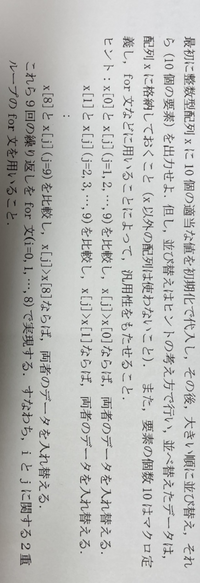 最初に整数型配列 x に 10 個の適当な値を初期化で代入し，その後，大きい順に並び替え，それ
ら(10 個の要素)を出力せよ．但し，並び替えはヒントの考え方で行い，並べ替えたデータは，
配列 x に格納しておくこと(x 以外の配列は使わないこと)．また，要素の個数 10 はマクロ定
義し，for 文などに用いることによって，汎用性をもたせること．
ヒント：x[0]と x[j](j=1,2,…,9)を比較し，x[j]>x[0]ならば，両者のデータを入れ替える．
x[1]と x[j](j=2,3,…,9)を比較し，x[j]>x[1]ならば，両者のデータを入れ替える．
：
x[8]と x[j](j=9)を比較し，x[j]>x[8]ならば，両者のデータを入れ替える．
これら 9 回の繰り返しを for 文(i=0,1,…,8)で実現する．すなわち，i と j に関する 2 重
ループの for 文を用いること．